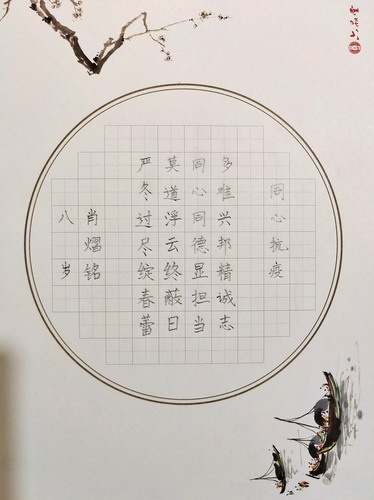 同心抗疫
多难兴邦精诚志
同心同德显担当
莫道浮云终蔽日
严冬过尽绽春蕾
肖熠铭
八岁